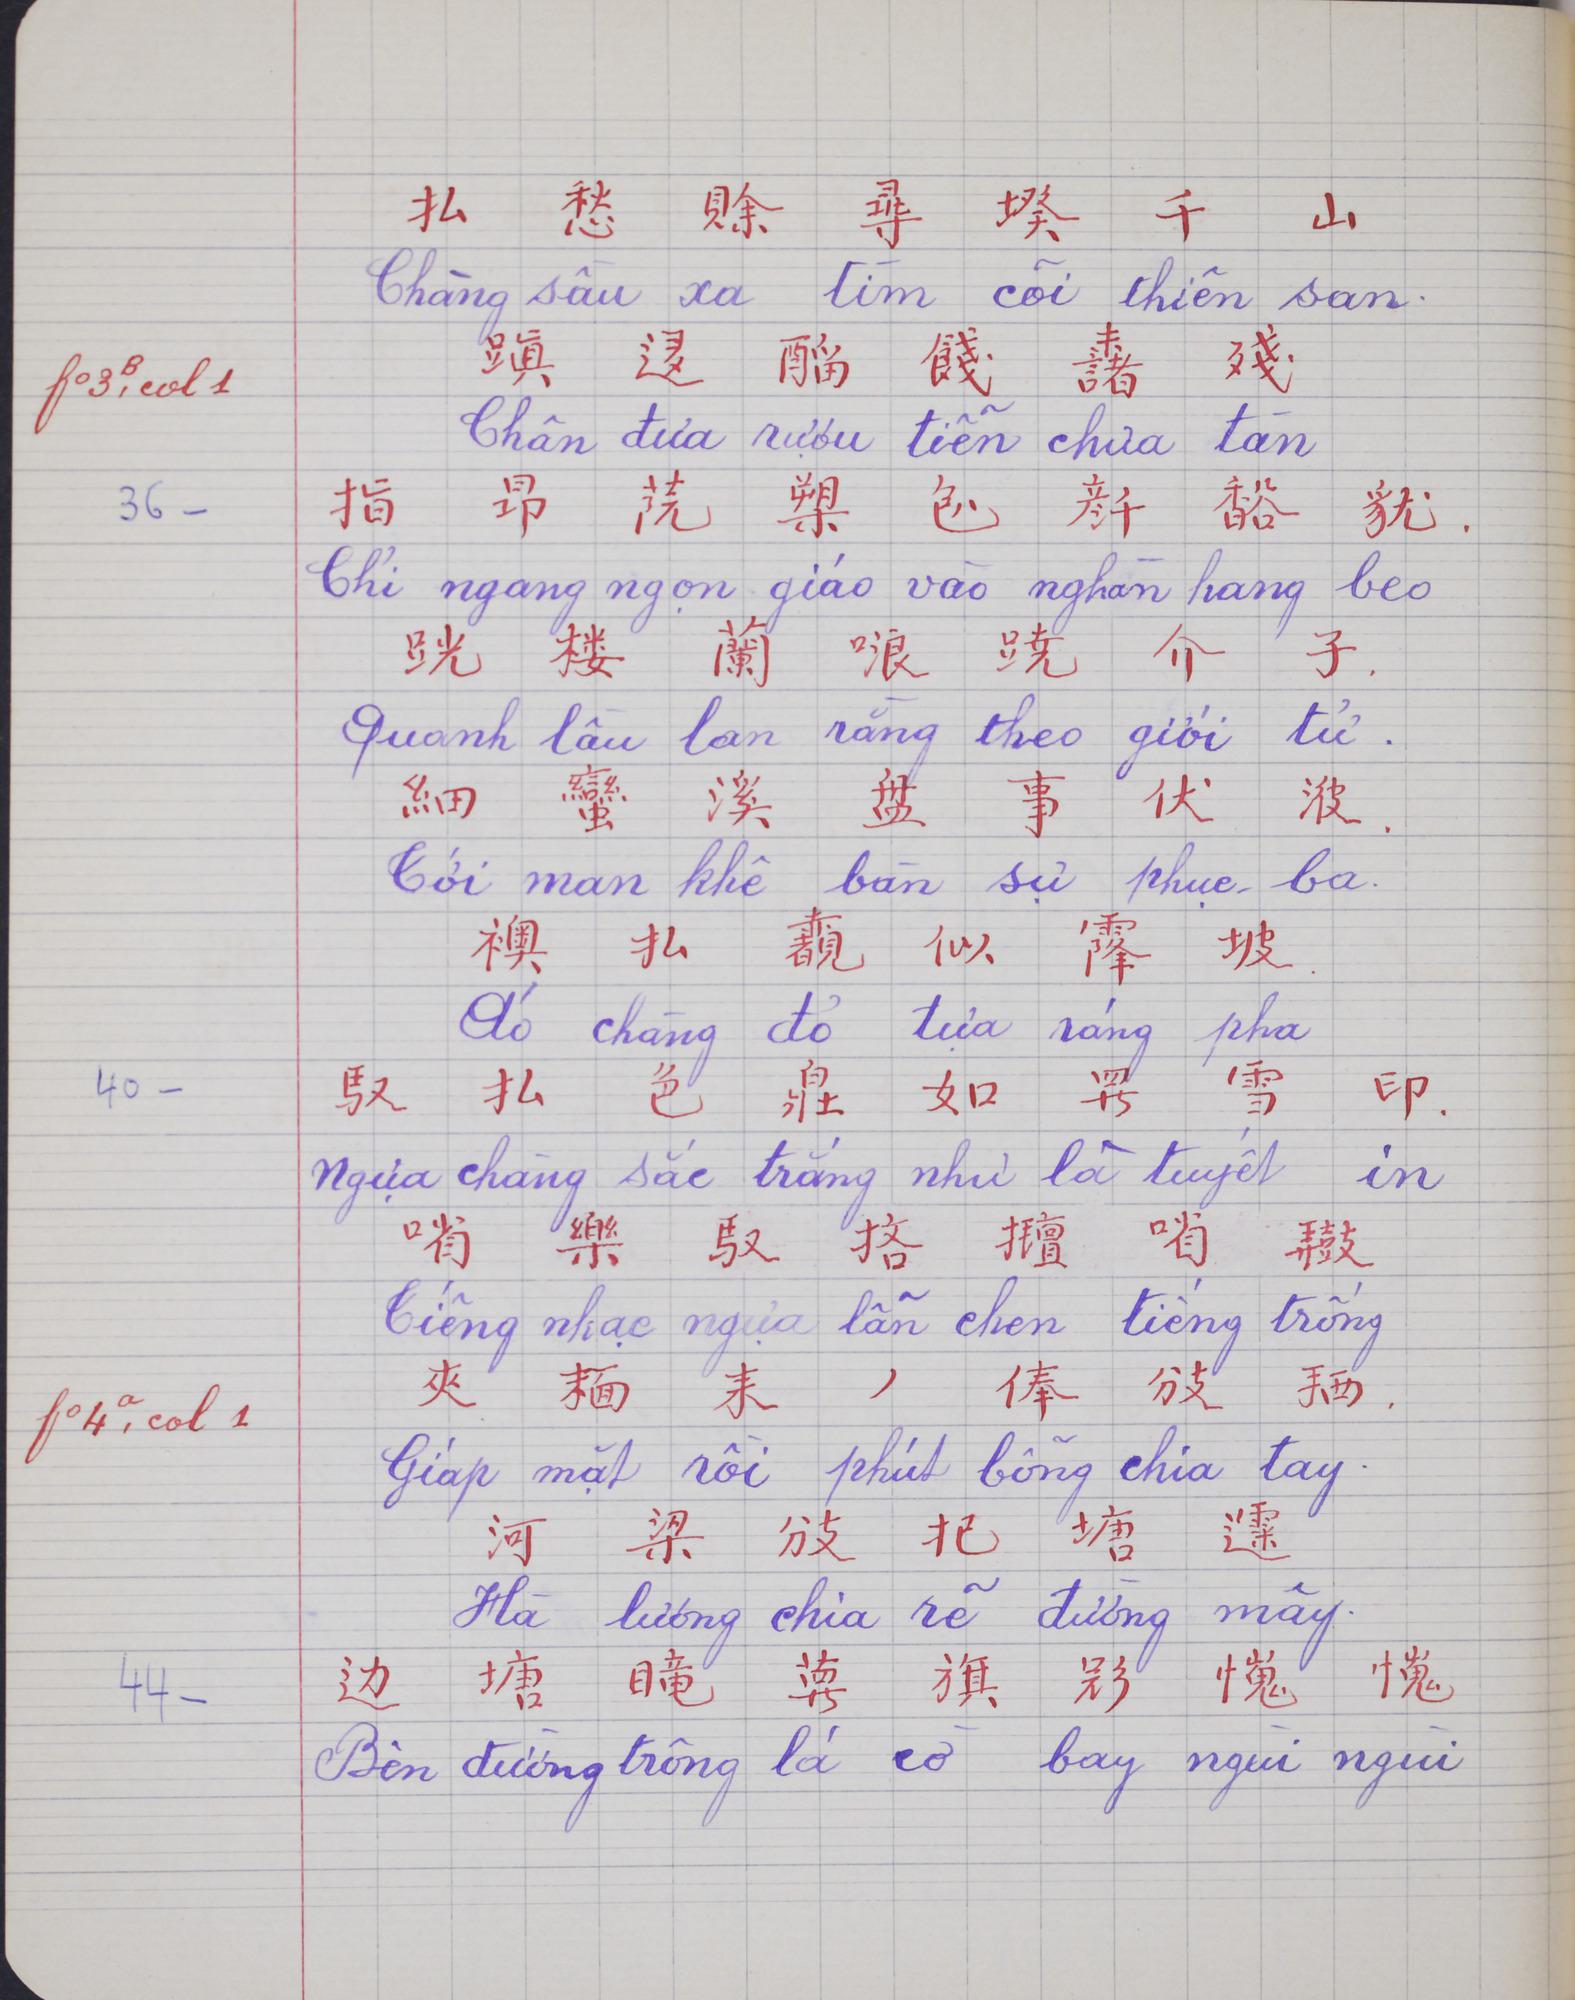 払 愁 賖 尋 堺 千 山
Chàng sầu xa tìm cõi thiên san.
蹎 迻 餞 殘
fº 3B, col 1
Chân đưa rượu tiễn chưa tàn
36 – 指 昻 槊 𠓨 𠦳 豻 .
Chỉ ngang ngọn giáo vào nghàn hang beo
𨀊 楼 蘭 哴 蹺 介 子 .
Quanh lâu lan rằng theo giới tử .
細 蠻 溪 盘 事 伏 波 .
Tới man khê bàn sự phục ba.
襖 払 覩 似 坡 .
Áó chàng đỏ tựa ráng pha
40 – 馭 払 色 如 雪 印 .
Ngựa chàng sắc trắng như là tuyết in
㗂 樂 馭 㗂
Tiếng nhạc ngựa lẫn chen tiếng trống
夾 耒 丿 俸 .
fº 4a, col 1
Giáp mặt rồi phút bỗng chia tay.
河 梁 塘
Hà lương chia rẽ đường mây.
44 – 边 塘 旗
Bên đường trông lá cờ bay ngùi ngùi